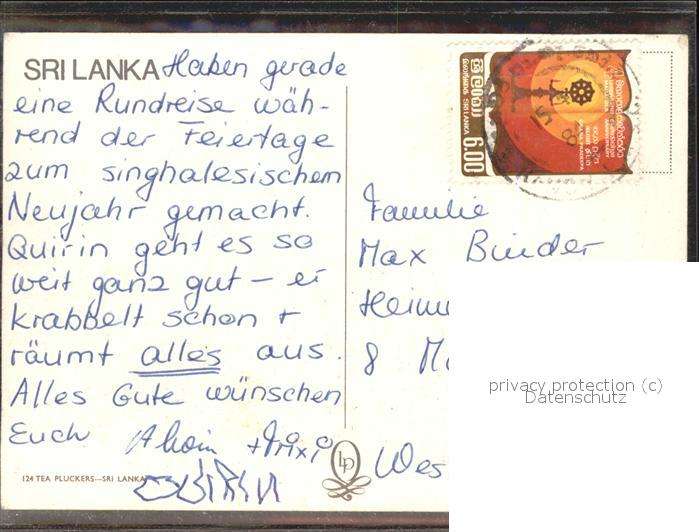 SRI LANKA Haben gerade
eine Rundreise wäh-
rend der Feiertage
zum singhalesischem
Neujahr gemacht.
Quirin geht es so
weit ganz gut – er
krabbelt schon +
räumt alles aus.
Alles Gute wünschen
Euch
+ Trixi
124 TEA PLUCKERS—SRI LANKA
LP
ශ්‍රී ලංකා
இலங்கை
SRI LANKA
6.00
Familie
Max Binder
Heim
8 M
Wes
privacy protection (c)
Datenschutz